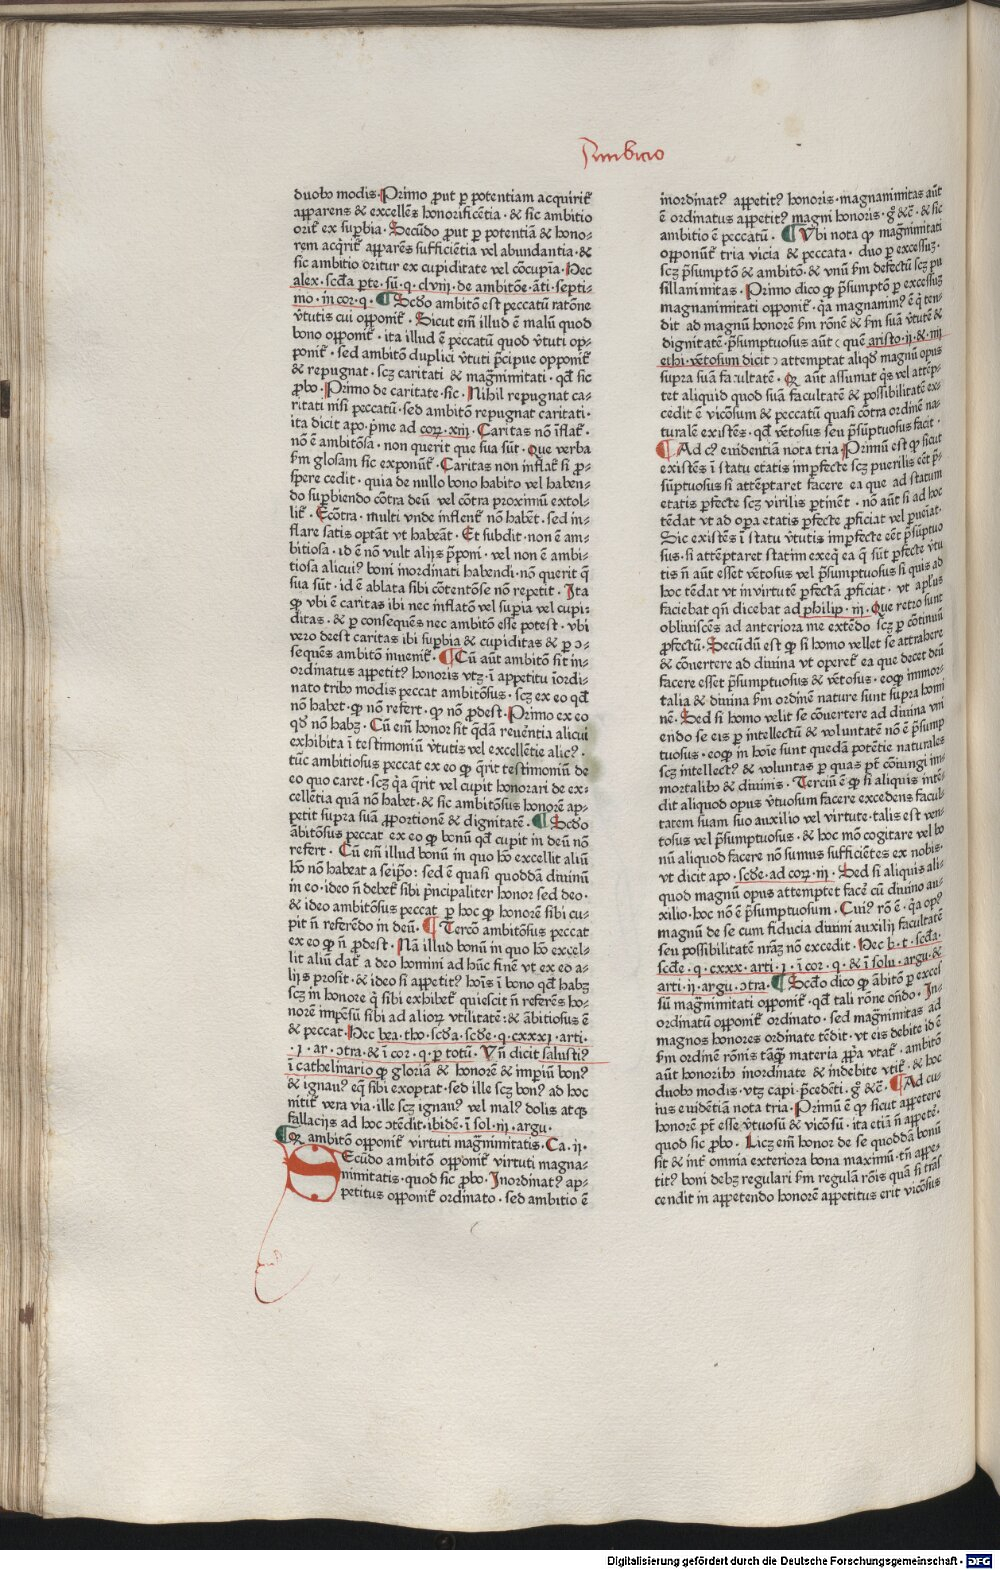 Ambicio
duob9 modis. Primo ꝓut ꝑ potentiam acquirit᷑
apꝑens & excellẽs honorificẽtia. & sic ambitio
orit᷑ ex suꝑbia. Secũdo ꝓut ꝑ potentiã & hono⸗
rem acq̃rit᷑ apparẽs sufficiẽtia vel abundantia. &
sic ambitio oritur ex cupiditate vel cõcupia. Hec
alex. scďa ꝑte. sũ. q. clviij. de ambitõe. ãti. septi⸗
mo. in cor. q. ¶ Scďo ambitõ est peccatũ ratõne
v̾tutis cui opponit᷑. Sicut em̃ illud ẽ malũ quod
bono opponit᷑. ita illud ẽ peccatũ quod v̾tuti op⸗
ponit᷑. sed ambitõ duplici v̾tuti p̃cipue opponit᷑
& repugnat. scꝫ caritati & magnĩmitati. qď sic
ꝓbo. Primo de caritate. sic. Nihil repugnat ca⸗
ritati nisi peccatũ. sed ambitõ repugnat caritati.
ita dicit apo. p̾me ad corꝝ. xiij. Caritas nõ ĩflat᷑.
nõ ẽ ambitõsa. non querit que sua sũt. Que verba
ẜm glosam sic exponũt᷑. Caritas non inflat᷑ si ꝓ⸗
spere cedit. quia de nullo bono habito vel haben⸗
do suꝑbiendo cõtra deũ vel cõtra proximũ extol⸗
lit᷑. Ecõtra. multi vnde inflent᷑ nõ habẽt. sed in⸗
flare satis optãt vt habeãt. Et subdit. non ẽ am⸗
bitiosa. id ẽ nõ vult alijs p̃poni. vel non ẽ ambi⸗
tiosa alicuiꝰ boni inordinati habendi. nõ querit q̃
sua sũt. id ẽ ablata sibi cõtentõse nõ repetit. Ita
ꝙ vbi ẽ caritas ibi nec inflatõ vel suꝑia vel cupi⸗
ditas. & ꝑ consequẽs nec ambitõ esse potest. vbi
vero deest caritas ibi suꝑbia & cupiditas & ꝑ ↄ⸗
sequẽs ambitõ inuenit᷑. ¶ Cũ aũt ambitõ sit in⸗
ordinatus appetitꝰ honoris vtꝫ. ĩ appetitu ĩordi⸗
nato trib9 modis peccat ambitõsus. scꝫ ex eo qď
nõ habet. ꝙ nõ refert. ꝙ nõ ꝓdest. Primo ex eo
qď nõ habꝫ. Cũ em̃ honor sit q̃dã reuẽntia alicui
exhibita ĩ testimoniũ v̾tutis vel excellẽtie alicꝰ.
tũc ambitiosus peccat ex eo ꝙ q̃rit testimoniũ de
eo quo caret. scꝫ q̾a q̃rit vel cupit honorari de ex⸗
cellẽtia quã nõ habet. & sic ambitõsus honorẽ ap⸗
petit supra suã ꝓportionẽ & dignitatẽ. ¶ Scďo
ãbitõsus peccat ex eo ꝙ bonũ qď cupit in deũ nõ
refert. Cũ em̃ illud bonũ in quo hõ excellit aliũ
hõ nõ habeat a seip̃o: sed ẽ quasi quoddã diuinũ
in eo. ideo ñ debet᷑ sibi p̃ncipaliter honor sed deo.
& ideo ambitõsus peccat ꝑ hoc ꝙ honorẽ sibi cu⸗
pit ñ referẽdo in deũ. ¶ Tercõ ambitõsus peccat
ex eo ꝙ ñ ꝓdest. Nã illud bonũ in quo hõ excel⸗
lit aliũ dat᷑ a deo homini ad hũc finẽ vt ex eo a⸗
lijs prosit. & ideo si appetitꝰ hoĩs ĩ bono qď habꝫ
scꝫ in honore q̃ sibi exhibet᷑ quiescit ñ referẽs ho⸗
norẽ impẽsũ sibi ad alioꝝ vtilitatẽ: & ãbitiosus ẽ
& peccat. Hec bea. tho. scďa. scďe. q. cxxxi. arti.
.i. ar. ↄtra. & ĩ cor. q. ꝑ totũ. Vñ dicit salustiꝰ
ĩ cathelinario ꝙ gloriã & honorẽ & imperiũ bonꝰ
& ignauꝰ eq̃ sibi exoptat. sed ille scꝫ bonꝰ ad hoc
nitit᷑ vera via. ille scꝫ ignauꝰ vel malꝰ dolis atqꝫ
fallacijs ad hoc ↄtẽdit. ibidẽ. ĩ sol. iij. argu.
¶ Qꝛ ambitõ opponit᷑ virtuti magñimitatis. Ca. ij.
SEcũdo ambitõ opponit᷑ virtuti magna⸗
nimitatis. quod sic ꝓbo. Inordinatꝰ ap⸗
petitus opponit᷑ ordinato. sed ambitio ẽ
inordinatꝰ appetitꝰ honoris. magnanimitas aũt
ẽ ordinatus appetitꝰ magni honoris. gͦ &c̃. & sic
ambitio ẽ peccatũ. ¶ Vbi nota ꝙ magñimitati
opponũt᷑ tria vicia & peccata. duo ꝑ excessuꝫ.
scꝫ p̃sumptõ & ambitõ. & vnũ ꝑ defectũ scꝫ pu
sillanimitas. Primo dico ꝙ p̃sumptõ ꝑ excessuꝫ
magnanimitati opponit᷑. q̾a magnanimꝰ ẽ q̃ ten⸗
dit ad magnũ honorẽ ẜm rõnẽ & ẜm suã v̾tutẽ &
dignitatẽ. p̃sumptuosus aũt (quẽ aristo. ij. & iiij
ethi. vẽtosum dicit) attemptat aliqď magnũ opus
supra suã facultatẽ. Qꝛ aũt assumat q̾s vel attẽp⸗
tet aliquid quod suã facultatẽ & possibilitatẽ ex⸗
cedit ẽ vicõsum & peccatũ quasi cõtra ordinẽ na⸗
turalẽ existẽs. qď vẽtosus seu p̃sũptuosus facit.
¶ Ad cꝰ euidentiã nota tria. Primũ est ꝙ sicut
existẽs ĩ statu etatis imperfecte scꝫ puerilis eẽt p̃⸗
sũptuosus si attẽptaret facere ea que ad statum
etatis ꝑfecte scꝫ virilis ꝑtinẽt. nõ aũt si ad hoc
tẽdat vt ad oꝑa etatis ꝑfecte ꝓficiat vel ꝑueiat.
Sic existẽs ĩ statu v̾tutis imꝑfecte eẽt p̃sũptuo
sus. si attẽptaret statim exeq̃ ea q̃ sũt ꝑfecte v̾tu
tis ñ aũt esset vẽtosus vel p̃sumptuosus si quis ad
hoc tẽdat vt in virtutẽ ꝑfectã ꝓficiat. vt aplꝰus
faciebat qñ dicebat ad philip. iij. Que retro sunt
obliuiscẽs ad anteriora me extẽdo scꝫ ꝑ cõtinuũ
ꝓfectũ. Secũdũ est ꝙ si homo vellet se attrahere
& cõuertere ad diuina vt operet᷑ ea que decet deũ
facere esset p̃sumptuosus & vẽtosus. eoꝙ immor⸗
talia & diuina ẜm ordinẽ nature sunt supra homi
nẽ. Sed si homo velit se cõuertere ad diuina vni
endo se eis ꝑ intellectũ & volũtatẽ nõ ẽ p̃sump
tuosus. eoꝙ in hoĩe sunt quedã potẽtie naturales
scꝫ intellectꝰ & voluntas ꝑ quas pt̃ cõiungi im⸗
mortalib9 & diuinis. Terciũ ẽ ꝙ si aliquis intẽ⸗
dit aliquod opus v̾tuosum facere excedens facul⸗
tatem suam suo auxilio vel virtute. talis est ven⸗
tosus vel p̃sumptuosus. & hoc mõ cogitare vel bo
nũ aliquod facere nõ sumus sufficiẽtes ex nobis.
vt dicit apo. scďe. ad corꝝ. iij. Sed si aliquis ali⸗
quod magnũ opus attemptet facẽ cũ diuino au⸗
xilio. hoc nõ ẽ p̃sumptuosum. Cuiꝰ rõ ẽ. q̾a opꝰ
magnũ de se cum fiducia diuini auxilij facultatẽ
seu possibilitatẽ nrãꝫ nõ excedit. Hec b. t. scďa.
scďe. q. cxxx. arti. i. ĩ cor. q. & ĩ solu. argu. &
arti. ij. argu. ↄtra. ¶ Scďo dico ꝙ ãbitõ ꝑ exces
sũ magñimitati opponit᷑. qď tali rõne oñdo. In⸗
ordinatũ opponit᷑ ordinato. sed magñimitas ad
magnos honores ordinate tẽdit. vt eis debite id ẽ
ẜm ordinẽ rõnis tãqꝫ materia ꝓpa vtat᷑. ambitõ
aũt honorib9 inordinate & indebite vtit᷑. & hoc
duob9 modis. vtꝫ capi. p̃cedẽti. gͦ &c̃. ¶ Ad cu⸗
ius euidẽtiã nota tria. Primũ ẽ ꝙ sicut appetere
honorẽ pt̃ esse v̾tuosũ & vicõsũ. ita etiã ñ appetẽ.
quod sic ꝓbo. Licꝫ em̃ honor de se quoddã bonũ
sit & int̾ omnia exteriora bona maximũ. tñ appe⸗
titꝰ boni debꝫ regulari ẜm regulã rõis quã si trãs
cendit in appetendo honorẽ appetitus erit vicõsus
Digitalisierung gefördert durch die Deutsche Forschungsgemeinschaft - DFG